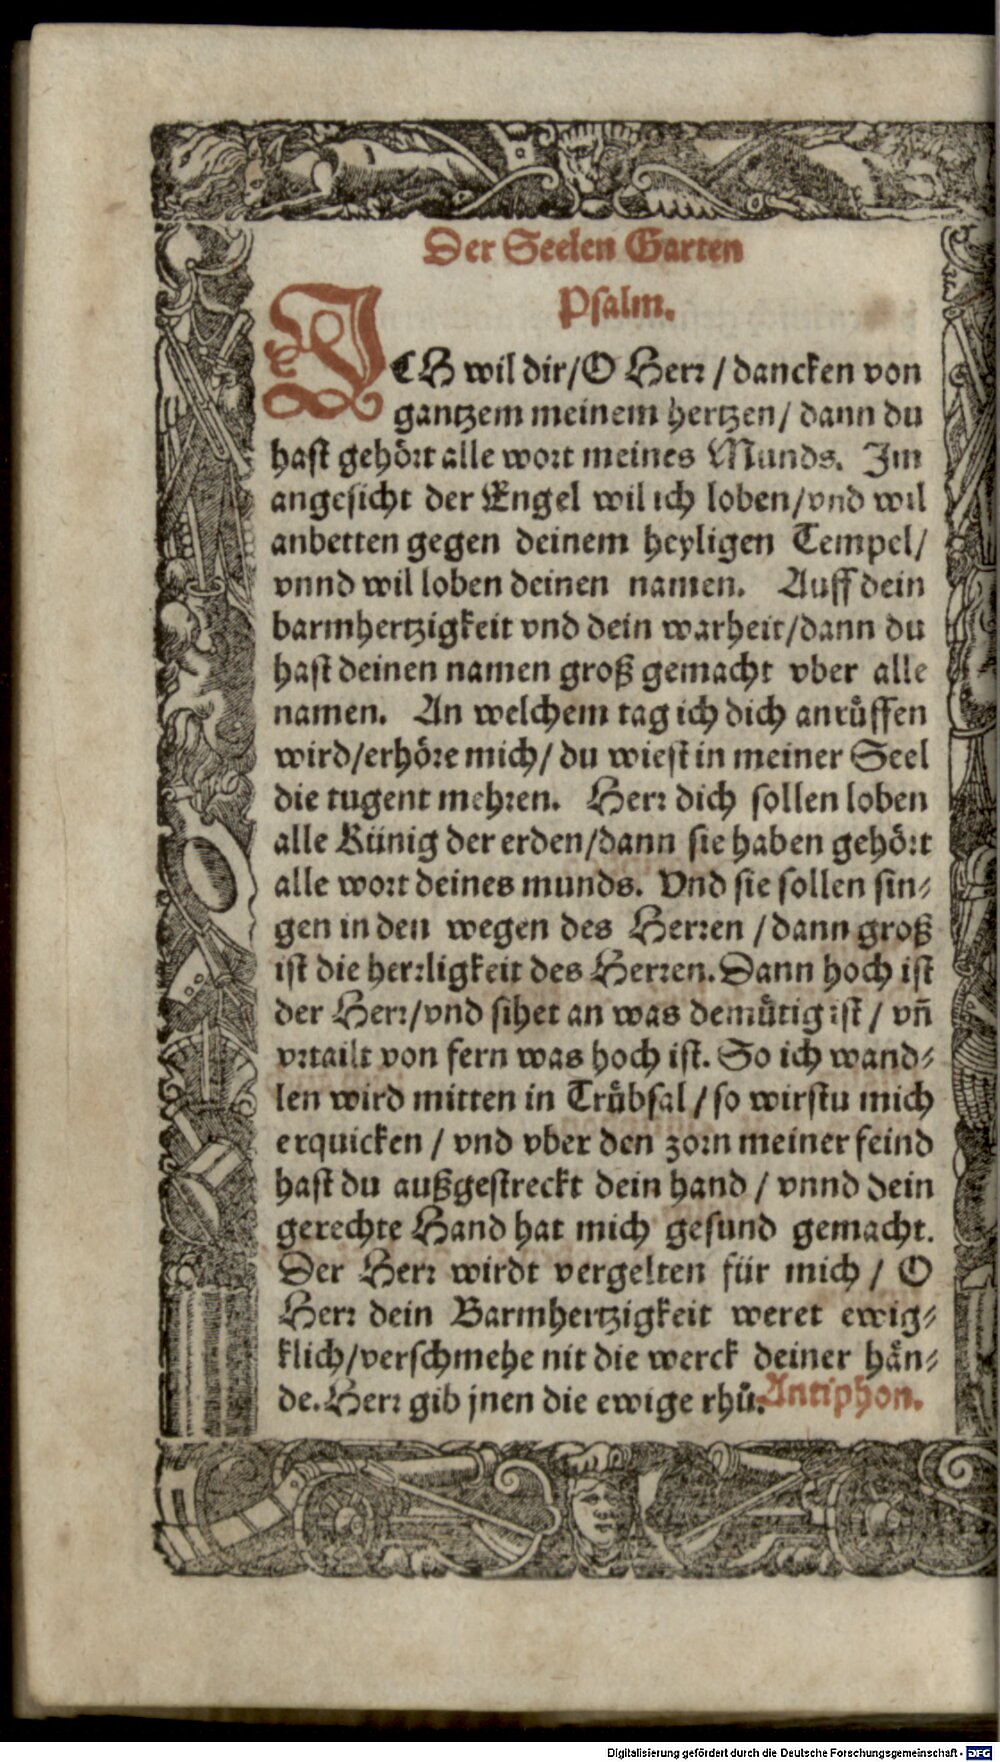 Der Seelen Garten
Psalm.
ICH wil dir/O Herr / dancken von
gantzem meinem hertzen/ dann du
hast gehört alle wort meines Munds. Im
angesicht der Engel wil ich loben/vnd wil
anbetten gegen deinem heyligen Tempel/
vnnd wil loben deinen namen. Auff dein
barmhertzigkeit vnd dein warheit/dann du
hast deinen namen groß gemacht vber alle
namen. An welchem tag ich dich anrüffen
wird/erhöre mich/ du wiest in meiner Seel
die tugent mehren. Herr dich sollen loben
alle Künig der erden/dann sie haben gehört
alle wort deines munds. Vnd sie sollen sin⸗
gen in den wegen des Herren / dann groß
ist die herrligkeit des Herren. Dann hoch ist
der Herr/vnd sihet an was demütig ist / vñ
vrtailt von fern was hoch ist. So ich wand⸗
len wird mitten in Trübsal / so wirstu mich
erquicken / vnd vber den zorn meiner feind
hast du außgestreckt dein hand / vnnd dein
gerechte Hand hat mich gesund gemacht.
Der Herr wirdt vergelten für mich / O
Herr dein Barmhertzigkeit weret ewig⸗
klich/verschmehe nit die werck deiner hän⸗
de. Herr gib jnen die ewige rhů. Antiphon.
Digitalisierung gefördert durch die Deutsche Forschungsgemeinschaft - DFG